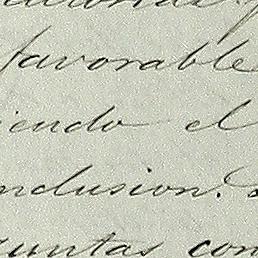 favorable
iendo el
nclusion.
untas con